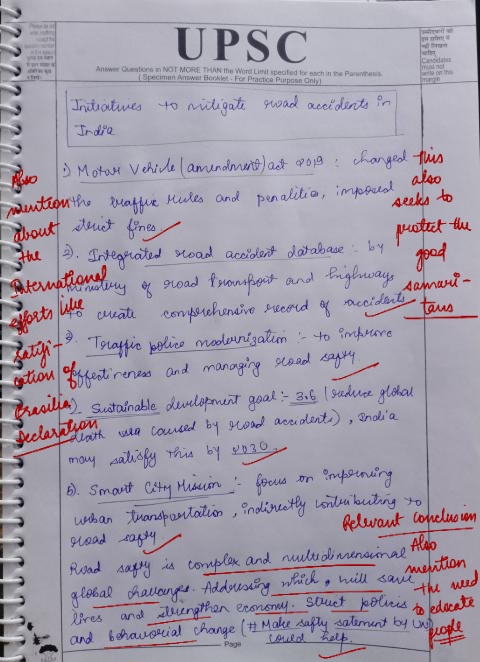 UPSC
Answer Questions in NOT MORE THAN the Word Limit specified for each in the Parenthesis.
( Specimen Answer Booklet - For Practice Purpose Only)
उम्मीदवारों को
इस हाशिए में
नहीं लिखना
चाहिए
Candidates
must not
write on this
margin
Initiatives to mitigate road accidents in
India
1) Motor Vehicle (amendment) act 2019 : changed
the traffic rules and penalities, imposed
strict fines.
2). Integrated road accident database :- by
ministery of road transport and highways
to create comprehensive record of accidents
3). Traffic police modernization :- to improve
effectireness and managing road safty.
) Sustainable development goal :- 3.6 (reduce global
death caused by road accidents), India
may satisfy this by 2030.
5). Smart City Mission :- focus on improving
urban transportation, indirectly contributing to
road safty
Road safty is complex and multidimensional
global challenges. Addressing which, will save
lives and strengthen economy. Strict policies
and behavorial change (# Make safty satement by UN)
could help.
Also
mention
about
the
International
efforts like
ratifi-
cation of
Brasilia
Declaration
this
also
seeks to
protect the
good
samari-
tans
Relevant conclusion
Also
mention
the need
to educate
people
Page